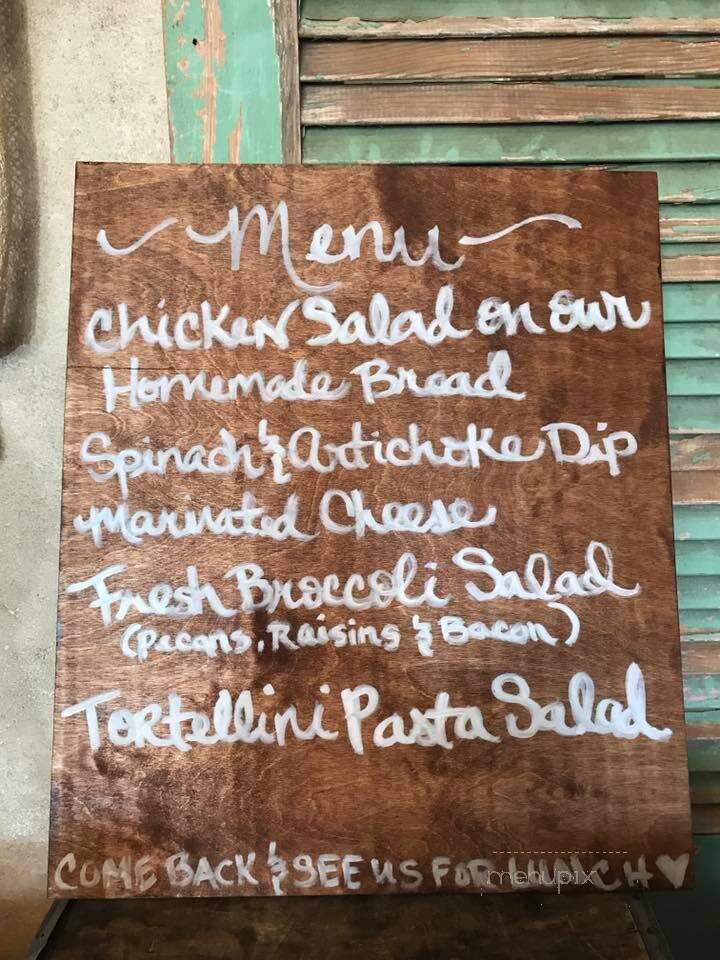 Menu
Chicken Salad on our
Homemade Bread
Spinach & Artichoke Dip
Marinated Cheese
Fresh Broccoli Salad
(Pecans, Raisins & Bacon)
Tortellini Pasta Salad
COME BACK & SEE US FOR LUNCH ♡
menupix